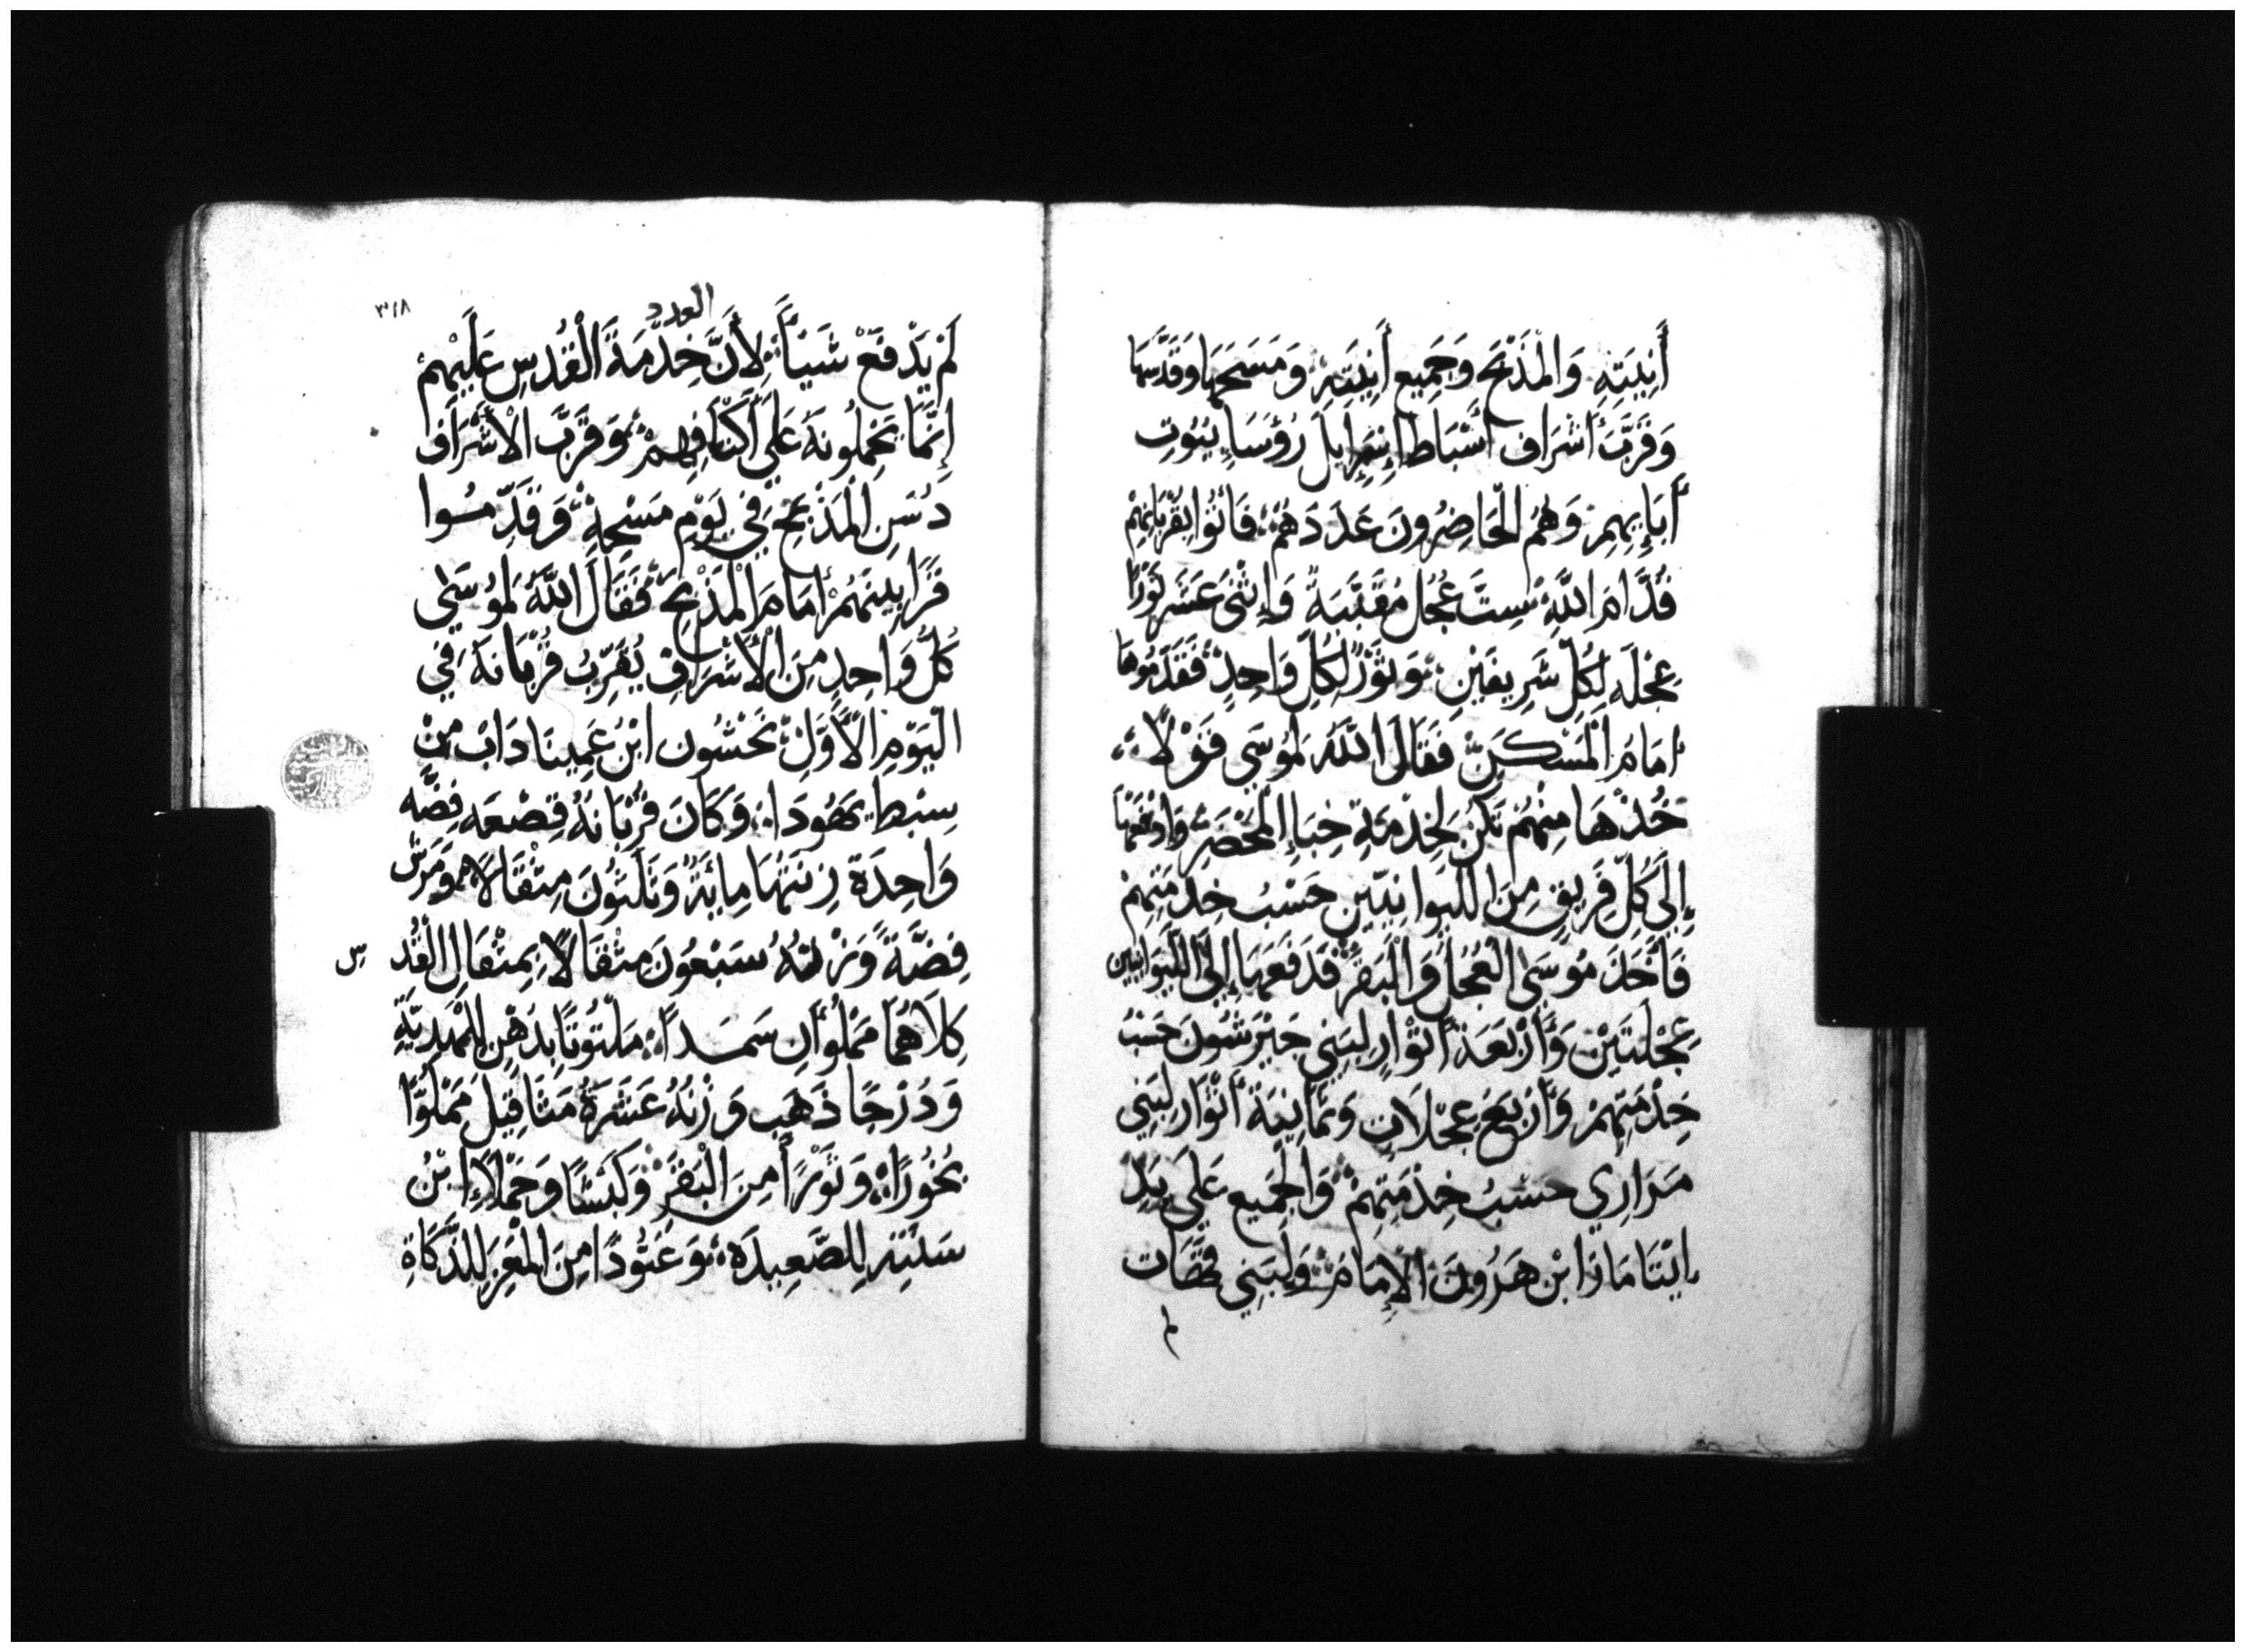 أَنِيَتِهِ وَالْمَذْبَحَ وَجَمِيع أَنِيَتِهِ وَمَسَحَهَا وَقَدَّسَهَا
وَقَرَّبَ أَشرَاف أَسْبَاط إِسْرَايِلَ رُؤَسَاءِ بيُوتِ
أَبَايِهِمِ وَهُمُ الْحَاضِرُونَ عَدَدَهُمْ فَاتُوا بِقُرْبَانِهِمْ
قُدَّامَ اللَّهِ سِتَّ عُجُل مُقَبَّبَةً وَإِثْنَى عَشَر ثَوْرًا
عِجْلَه لِكُلّ شَرِيفَيْنِ وَثَوْرٌ لِكُلِّ وَاحِدٍ فَقَدَّمُوهَا
أمَامَ الْمَسْكَنِ فَقَالَ اللَّهُ لِمُوسَى قَوْلًا
خُذْهَا مِنْهُمْ تَكُنْ لِخِدْمَةِ خِبَاءِ الْمَحْضَرِ وَادْفَعْهَا
إِلَى كُلِّ فَرِيقٍ مِنَ اللَّيوَانِيّينِ حَسْبَ خِدْمَتِهِمْ
فَأَخَذَ مُوسَى الْعُجُلَ وَالْبَقَرَ فَدَفَعَهَا إِلَى اللَّيوَانِيين
عِجْلَتَيْنِ وَأَرْبَعَة أَثْوَارٍ لِبَنِي جَيْرَشُونَ حَسْبَ
خِدْمَتِهِمْ وَأَرْبَعَ عِجْلَاتٍ وَثَمَانِيَة أَثْوَارٍ لِبَنِي
مَرَارِي حَسْبَ خِدْمَتِهِمْ وَالْجَمِيع عَلَى يَدِ
اِيْتَامَارَ ابْن هَرُونَ الْإِمَامَ وَلِبَنِي قَهَات
لم
العدد
٣١٨
لَمْ يَدْفَعْ شَيْئًا لِأَنَّ خِدْمَةَ الْقُدسِ عَلَيْهِمْ
إِنَّمَا يَحْمِلُونَهُ عَلَى أَكْتَافِهِمْ وَقَرَّبَ الْأَشْرَافَ
دُسَنِ الْمَذْبَحِ فِي يَوْمِ مَسْحِهِ وَقَدَّمُوا
قَرَابِينَهُمْ أمَامَ الْمَذْبَحِ فَقَالَ اللَّهُ لِمُوسَى
كُلُّ وَاحِدٍ مِنَ الْأَشرَافِ يُقَرِّبُ قُرْبَانَهُ فِي
الْيَوْمِ الْأَوَّلِ نَحْشُون ابْنُ عَمِينَادَابْ مِنْ
سِبْط يَهُودَا وَكَانَ قُرْبَانُهُ قِصْعَه فِضَّه
وَاحِدَة زِنَتُهَا مِائَةٌ وَثَلَثُونَ مِثْقَالًا وَمِرَشّ
فِضَّةً وَزْنُهُ سَبْعُونَ مِثْقَالًا بِمِثْقَالِ الْقُدس
كِلَاهُمَا مَمْلُوأَنِ سَمَدًا مَلْتُوتًا بِدَهْنٍ لِلْهَدِيَّةِ
وَدُرْجًا ذَهَب وَزْنُهُ عَشَرَةُ مَثَاقِيلَ مَمْلُوًّا
بَخُورًا وَثَوْرًا مِنَ الْبَقَرِ وَكَبْشًا وَحَمَلًا إِبْنُ
سَنَتِهِ لِلصَّعِيدَه وَعَتُودًا مِنَ الْمَعْزِ لِلذَّكَاةِ